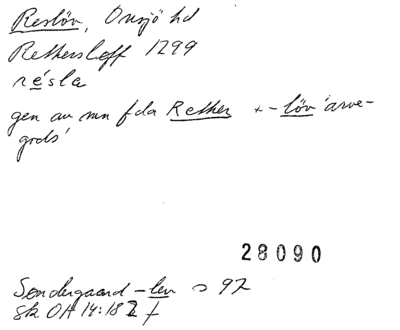 Reslöv, Onsjö hd
Rethersleff 1299
résla
gen av mn fda Rether + -löv 'arve-
gods'
28090
Söndergaard -lev s 97
Sk OH 14:182 f